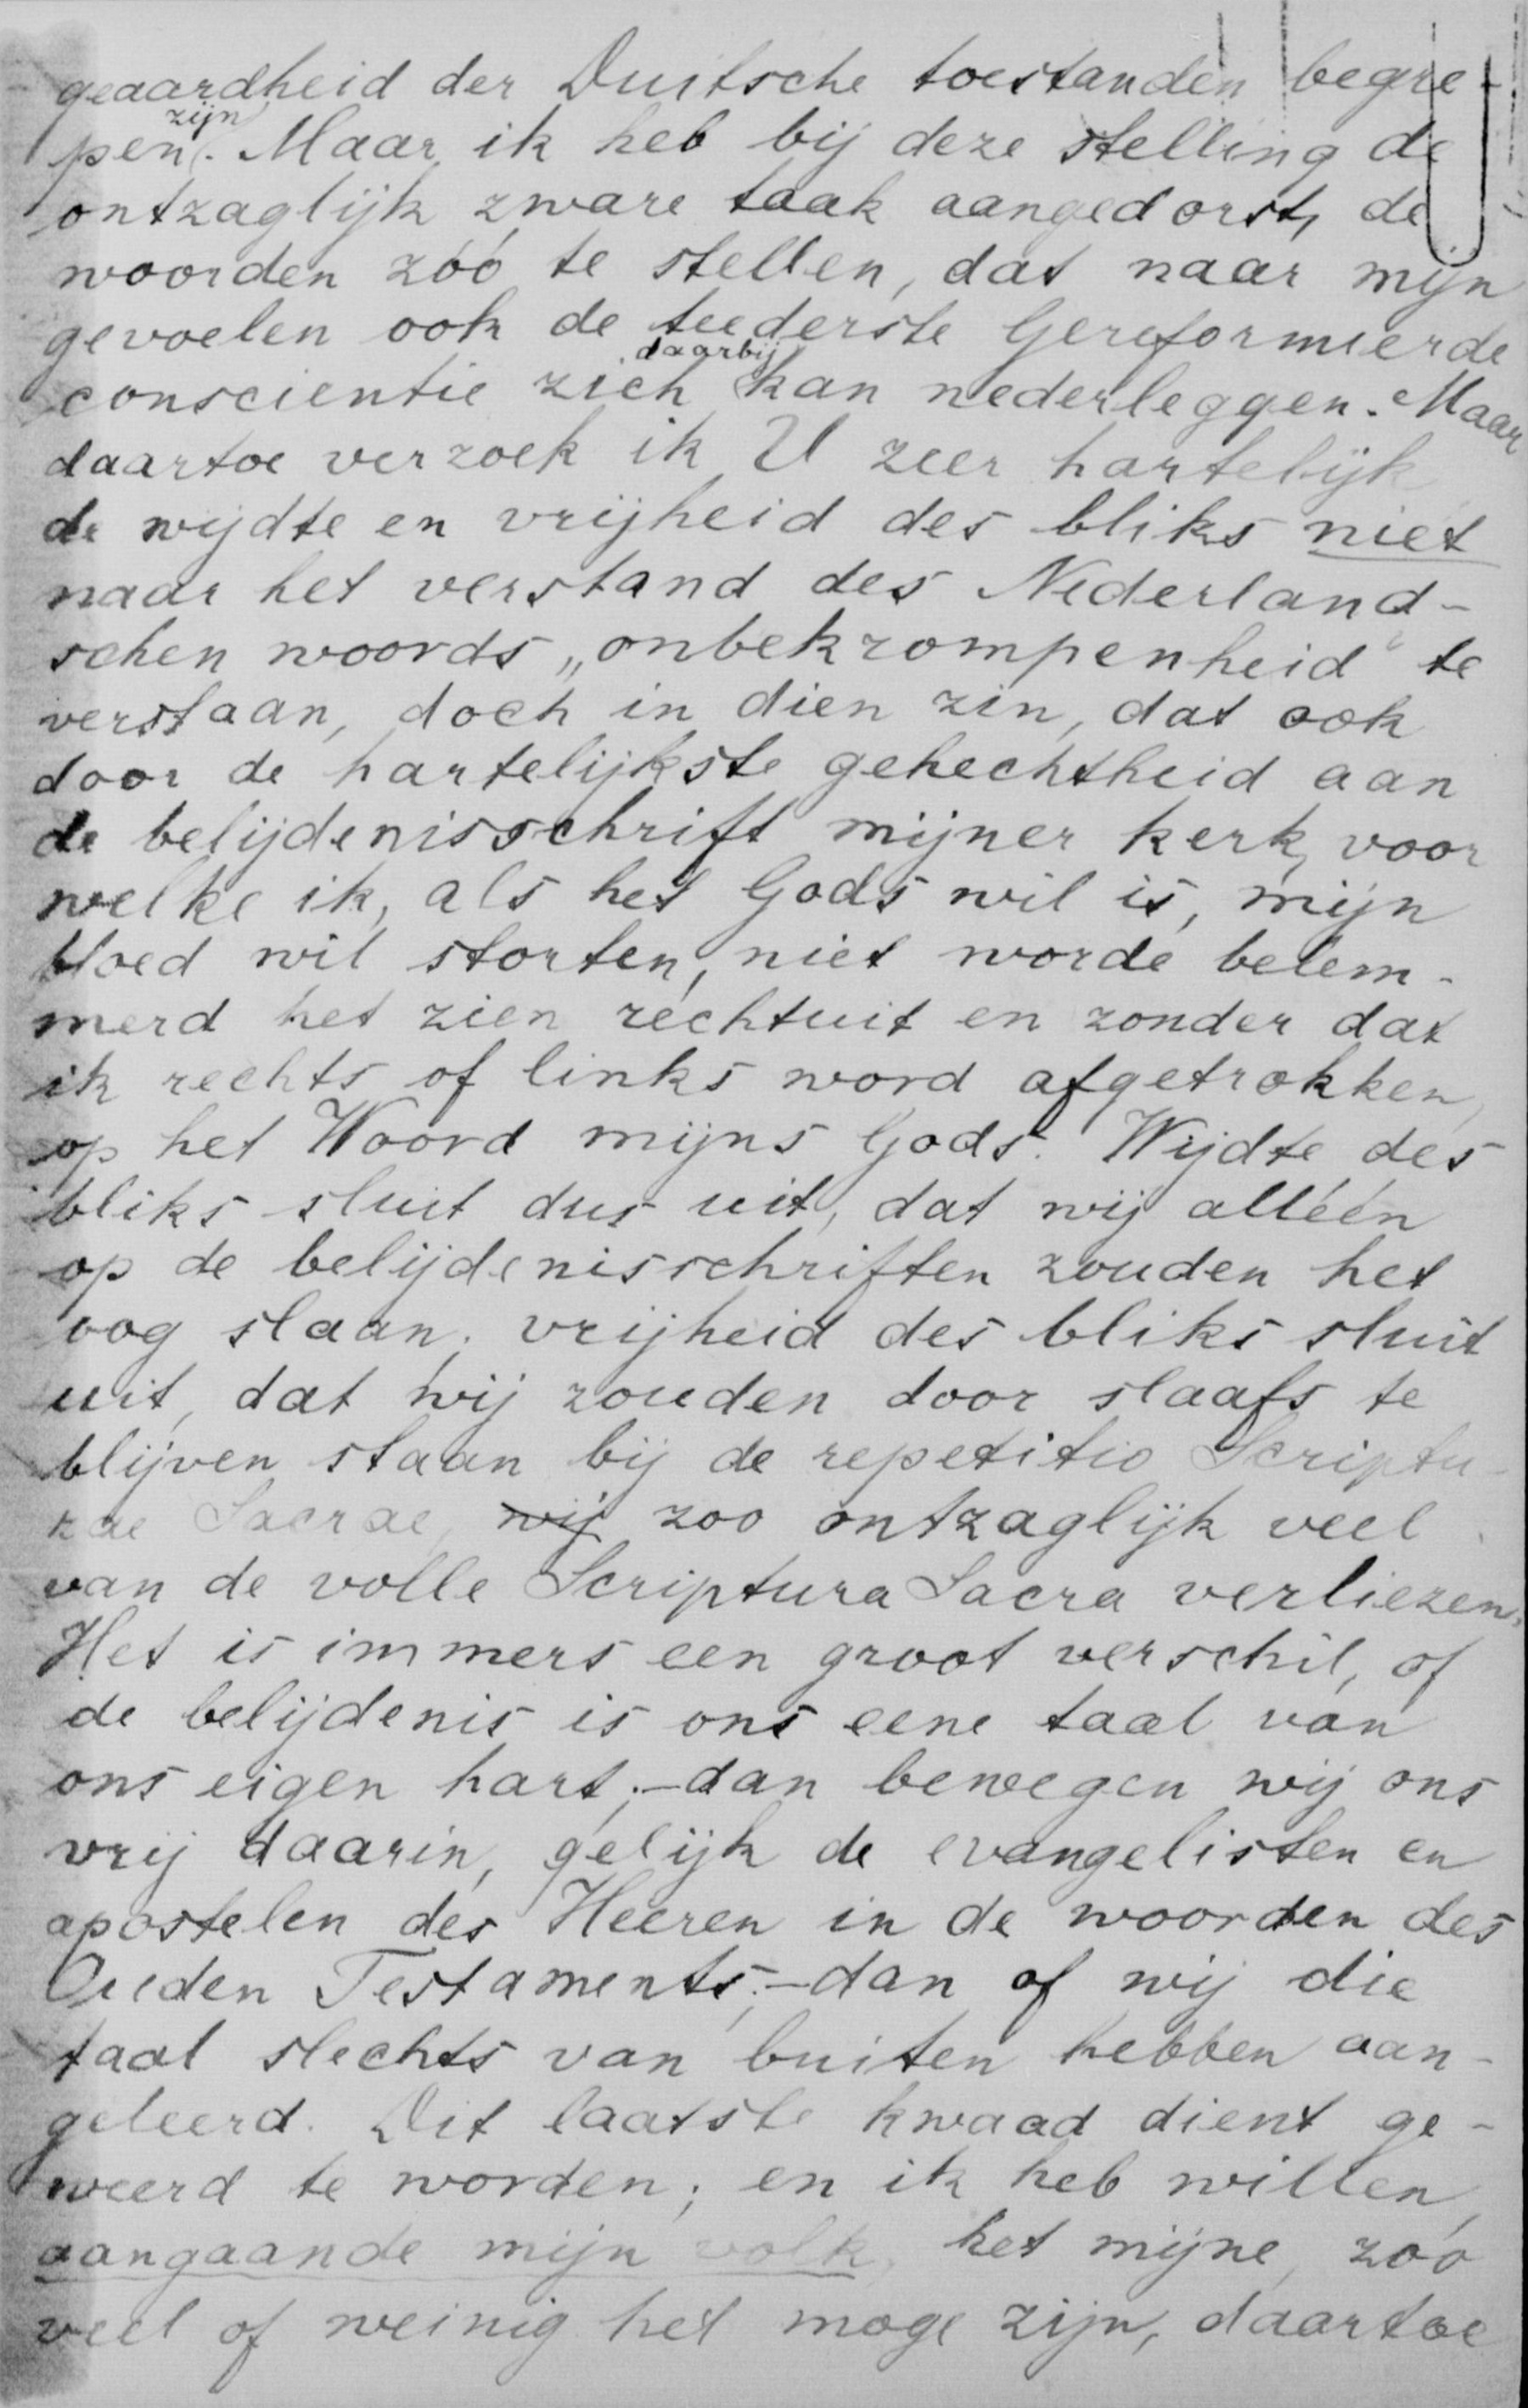 geaardheid der Duitsche toestanden begre-
zijn
pen. Maar ik heb bij deze stelling de
ontzaglijk zware taak aangedorst, de
woorden zóó te stellen, dat naar mijn
gevoelen ook de teederste Gereformeerde
daarbij
conscientie zich kan nederleggen. Maar
daartoe verzoek ik U zeer hartelijk
de wijdte en vrijheid des bliks niet
naar het verstand des Nederland-
schen woords „onbekrompenheid" te
verstaan, doch in dien zin, dat ook
door de hartelijkste gehechtheid aan
de belijdenisschrift mijner kerk, voor
welke ik, als het Gods wil is, mijn
bloed wil storten, niet worde belem-
merd het zien rechtuit en zonder dat
ik rechts of links word afgetrokken,
op het Woord mijns Gods. Wijdte des
bliks sluit dus uit, dat wij alléén
op de belijdenisschriften zouden het
oog slaan; vrijheid des bliks sluit
uit, dat wij zouden door slaafs te
blijven staan bij de repetitio Scriptu-
rae Sacrae, wij zoo ontzaglijk veel
van de volle Scriptura Sacra verliezen.
Het is immers een groot verschil, of
de belijdenis is ons eene taal van
ons eigen hart;-dan bewegen wij ons
vrij daarin, gelijk de evangelisten en
apostelen des Heeren in de woorden des
Ouden Testaments;-dan of wij die
taal slechts van buiten hebben aan-
geleerd. Dit laatste kwaad dient ge-
weerd te worden; en ik heb willen,
aangaande mijn volk, het mijne, zóó
veel of weinig het moge zijn, daartoe